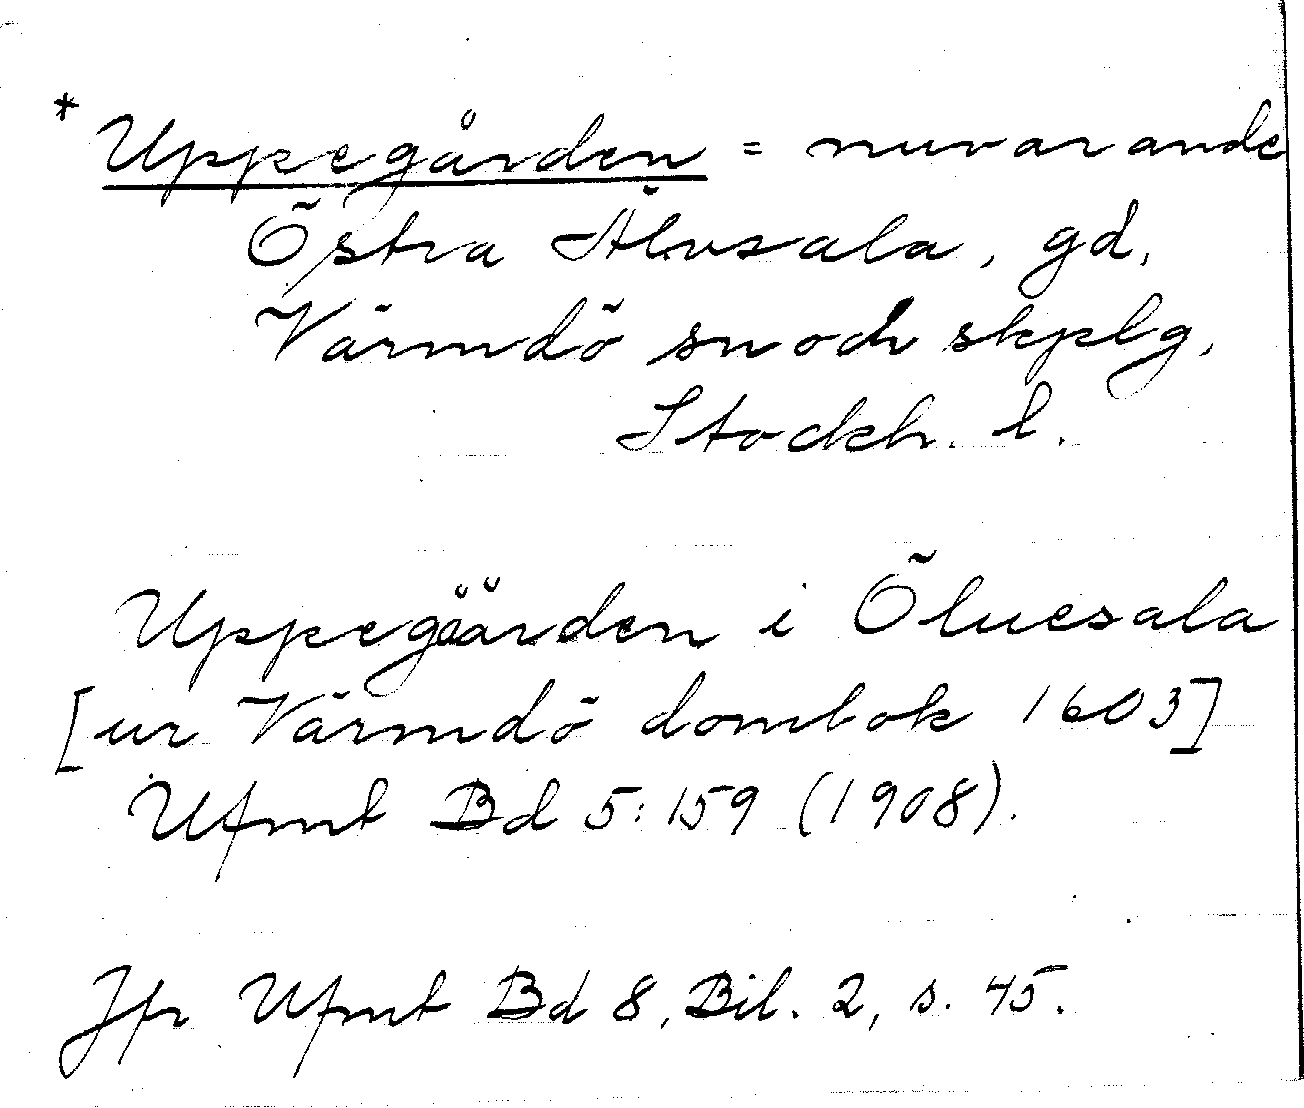 * Uppegården = nuvarande
Östra Älvsala, gd,
Värmdö sn och skplg,
Stockh. l.
Uppegåården i Öluesala
[ur Värmdö dombok 1603]
Ufmt Bd 5:159 (1908).
Jfr Ufmt Bd 8, Bil. 2, s. 45.